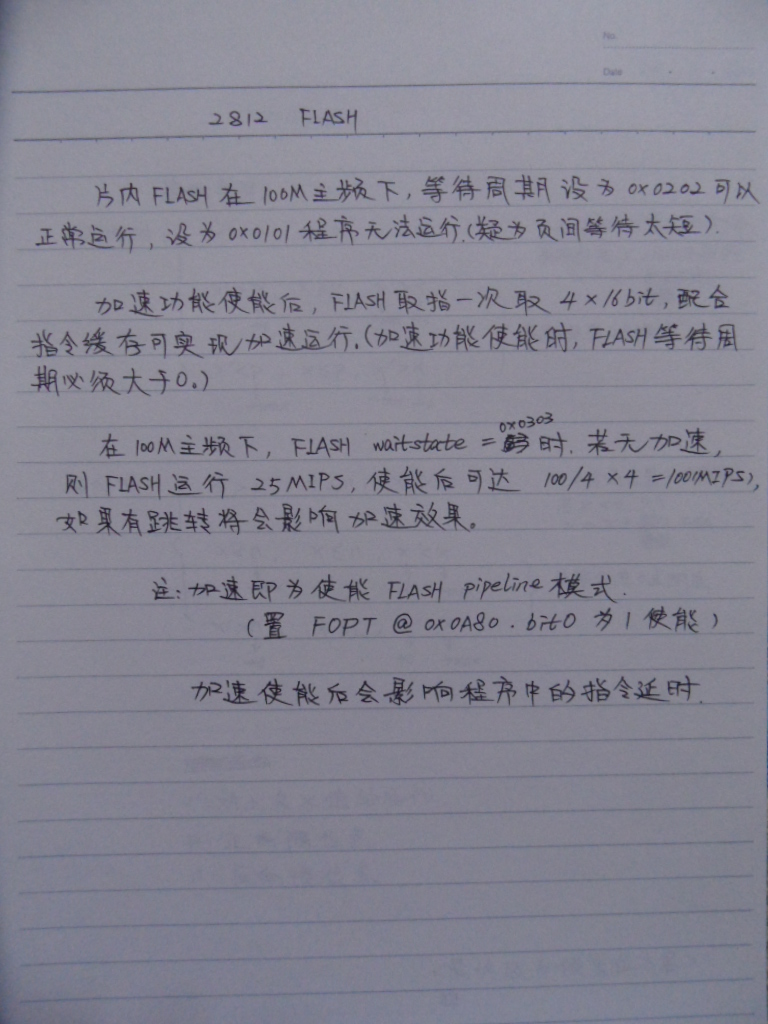 No.
Date
2812 FLASH
片内FLASH在100M主频下，等待周期设为0x0202可以
正常运行，设为0x0101程序无法运行.(疑为页间等待太短).
加速功能使能后，FLASH取指一次取4×16bit，配合
指令缓存可实现加速运行.(加速功能使能时，FLASH等待周
期必须大于0。)
0x0303
在100M主频下，FLASH waitstate = 时.若无加速，
则FLASH运行25MIPS，使能后可达 100/4×4=100(MIPS)，
如果有跳转将会影响加速效果。
注:加速即为使能FLASH pipeline模式.
(置 FOPT @ 0x0A80 . bit0 为1使能)
加速使能后会影响程序中的指令延时.